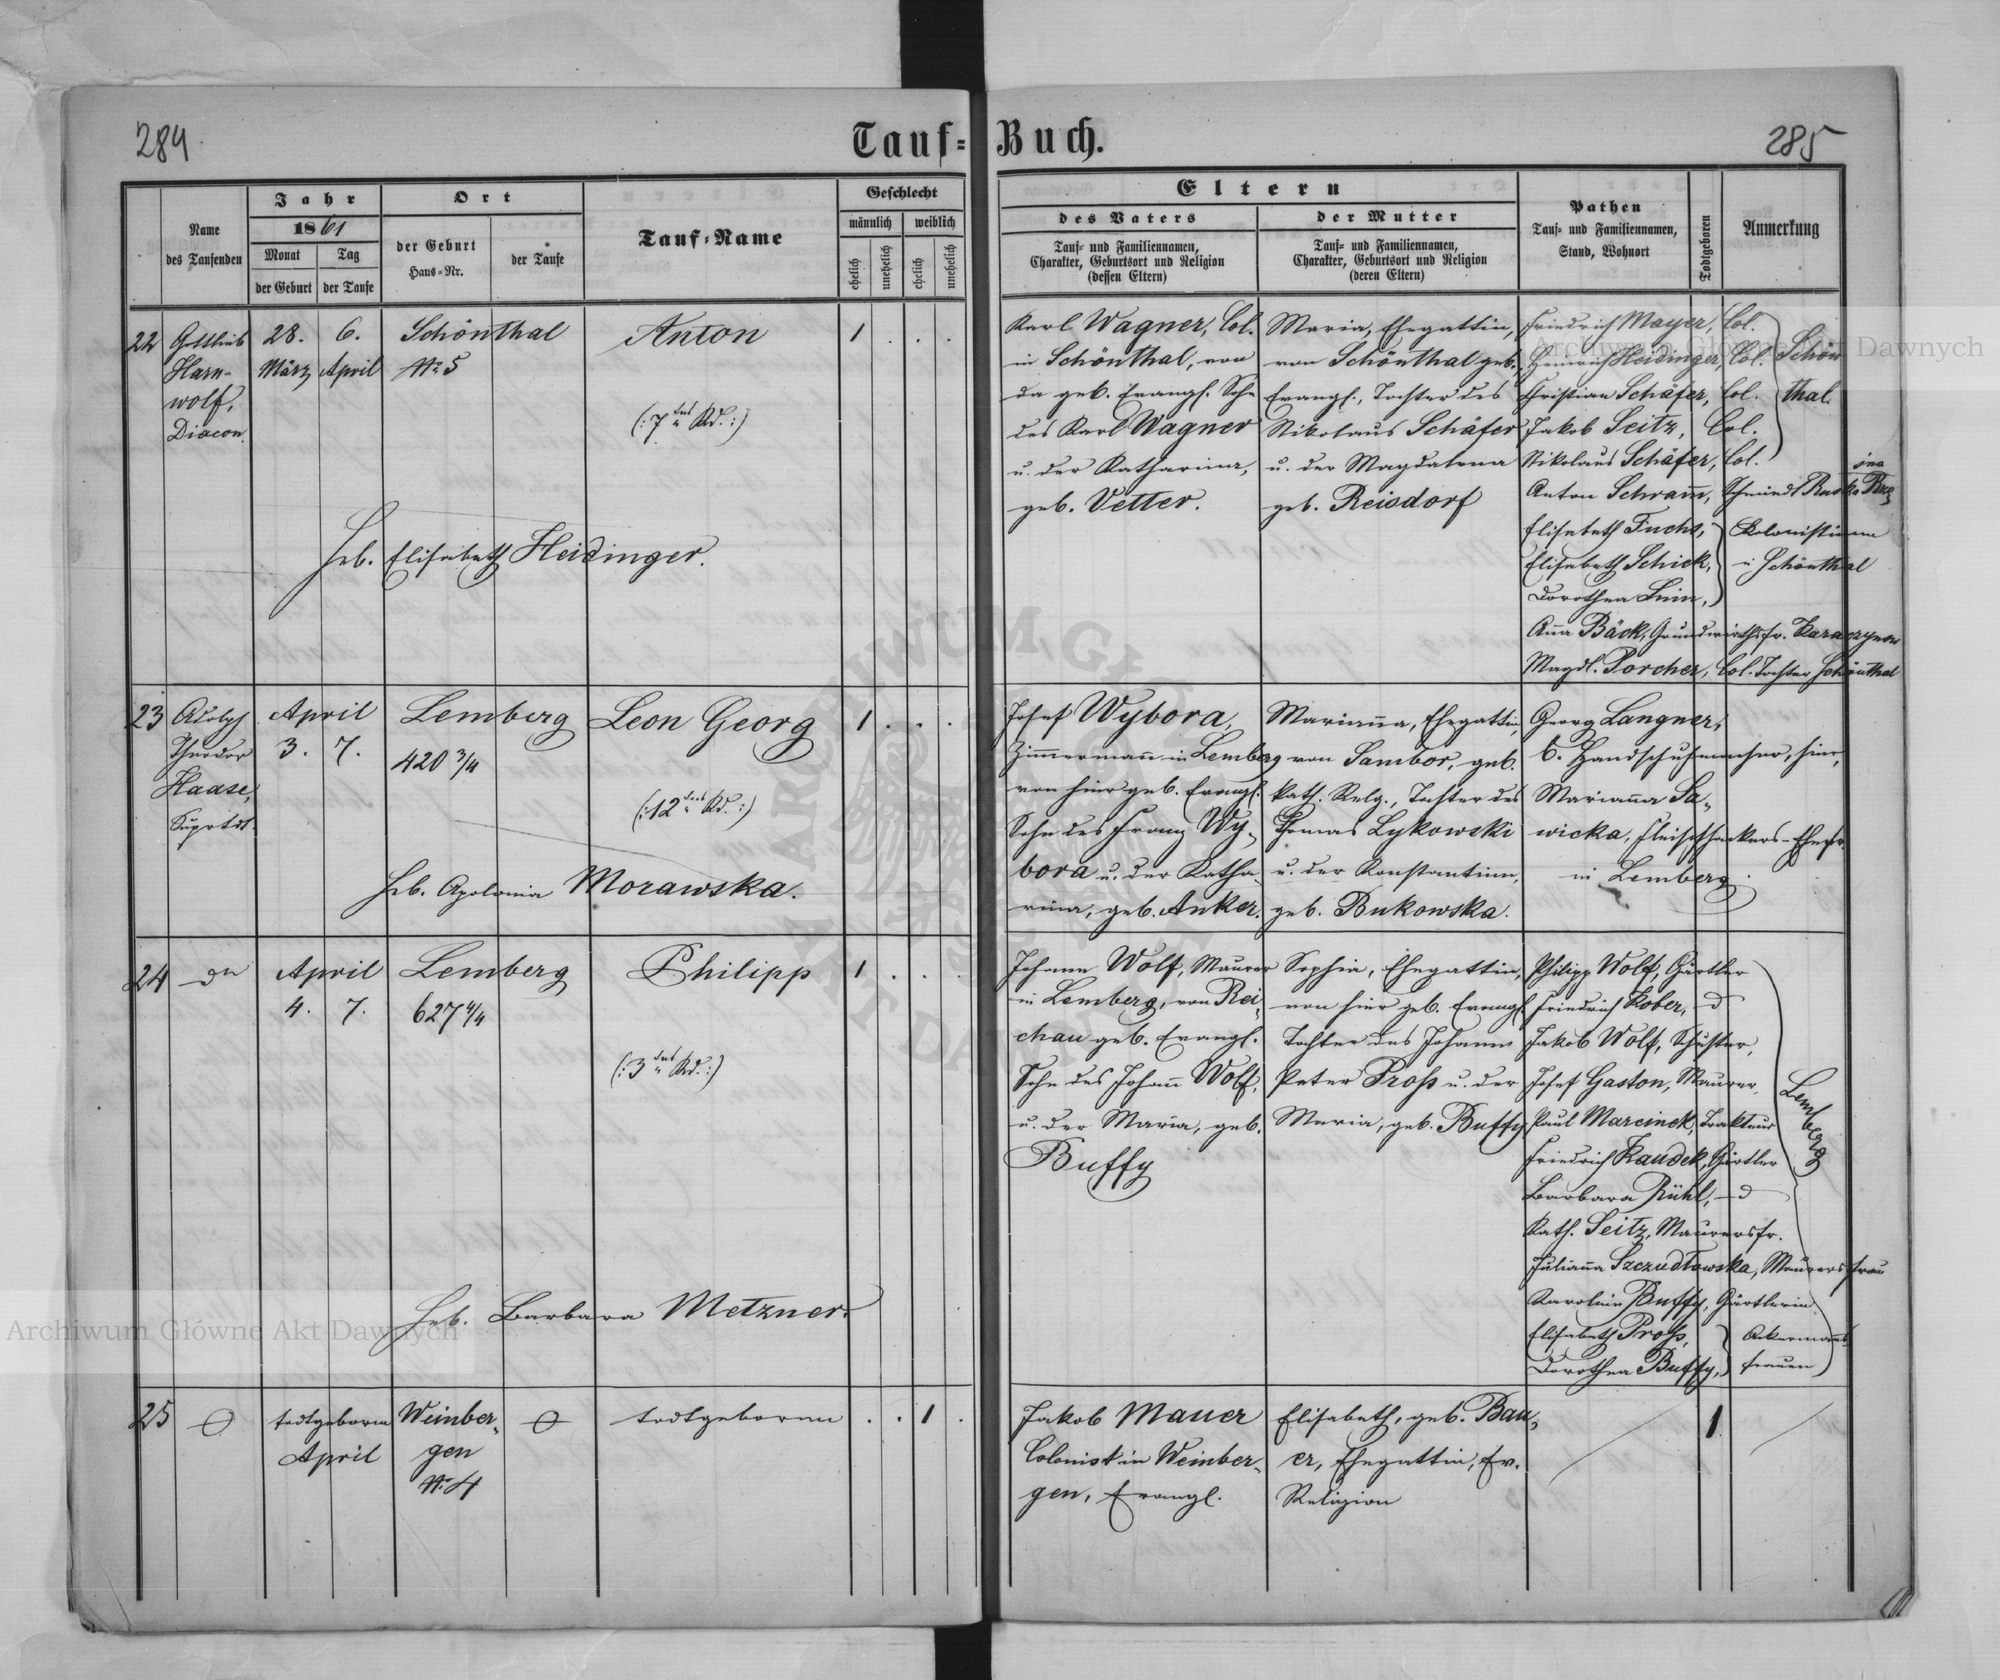 284
285
Tauf-Buch.
Name
des Taufenden
Jahr
1861
Monat
Tag
der Geburt
der Taufe
Ort
der Geburt
Haus-Nr.
der Taufe
Tauf-Name
Geschlecht
männlich
weiblich
ehelich
unehelich
ehelich
unehelich
Eltern
des Vaters
Tauf- und Familiennamen,
Charakter, Geburtsort und Religion
(dessen Eltern)
der Mutter
Tauf- und Familiennamen,
Charakter, Geburtsort und Religion
(deren Eltern)
Pathen
Tauf- und Familiennamen,
Stand, Wohnort
Todtgeboren
Anmerkung
22
Gottlieb
Harn-
wolf,
Diacon.
28.
März
6.
April
Schönthal
Nr 5
Anton
(: 7tes Kd. :)
1 . . .
Heb. Elisabeth Heidinger.
Karl Wagner, Col.
in Schönthal, von
da geb. Evangl. Sohn
des Karl Wagner
u. der Katharina,
geb. Vetter.
Maria, Ehegattin,
von Schönthal geb.
Evangl., Tochter des
Nikolaus Schäfer
u. der Magdalena
geb. Reisdorf
Friedrich Mayer, Col.
Heinrich Heidinger, Col.
Christian Schäfer, Col.
Jakob Seitz, Col.
Nikolaus Schäfer, Col.
Schön
thal.
Anton Schramm,
Elisabeth Fuchs,
Elisabeth Schick,
Dorothea
Kolonistinen
in Schönthal
Anna Bäck, Grundwirthsfr.
Magdl. Porcher, Col. Tochter Schönthal
23
Adolph
Theodor
Haase,
Suprtdt.
April
3. 7.
Lemberg
420 3/4
Leon Georg
(: 12tes Kd. :)
1 . . .
Heb. Apolonia Morawska.
Josef Wybora,
Zimmermann in Lemberg
von hier geb. Evangl.
Sohn des Franz Wy-
bora u. der Katha-
rina, geb. Anker.
Marianna, Ehegattin,
von Sambor, geb.
kath. Relg., Tochter des
Thomas Lykowski
u. der Konstantina,
geb. Bukowska.
Georg Langner,
b. Handschuhmacher, hier,
Marianna Sa-
wicka, Fleischhackers-Ehefr.
in Lemberg
24
dto
April
4. 7.
Lemberg
627 4/4
Philipp
(: 3tes Kd. :)
1 . . .
Heb. Barbara Metzner.
Johann Wolf, Maurer
in Lemberg, von Rei-
chau geb. Evangl.
Sohn des Johann Wolf,
u. der Maria, geb.
Buffy
Sophia, Ehegattin,
von hier geb. Evangl.
Tochter des Johann
Peter Proß u. der
Maria, geb. Buffy
Philipp Wolf, Gärtler
Friedrich Kober, d
Jakob Wolf, Schuster,
Josef Gaston, Maurer,
Paul Marcinek, Trakteur
Friedrich Kaudek, Gärtler
Barbara Rühl, d
Kath. Seitz, Maurersfr.
Julianna Szczudłowska, Maurersfrau
Karolina Buffy, Gärtlerin
Elisabeth Proß,
Dorothea Buffy,
Ackermanns-
frauen
Lemberg
25
todtgeboren
April
Weinber-
gen
Nr 4
todtgeboren
. . 1 .
Jakob Mauer
Colonist in Weinber-
gen, Evangl.
Elisabeth, geb. Bau-
er, Ehegattin, Ev.
Religion
1
Archiwum Główne Akt Dawnych
Archiwum Główne Akt Dawnych